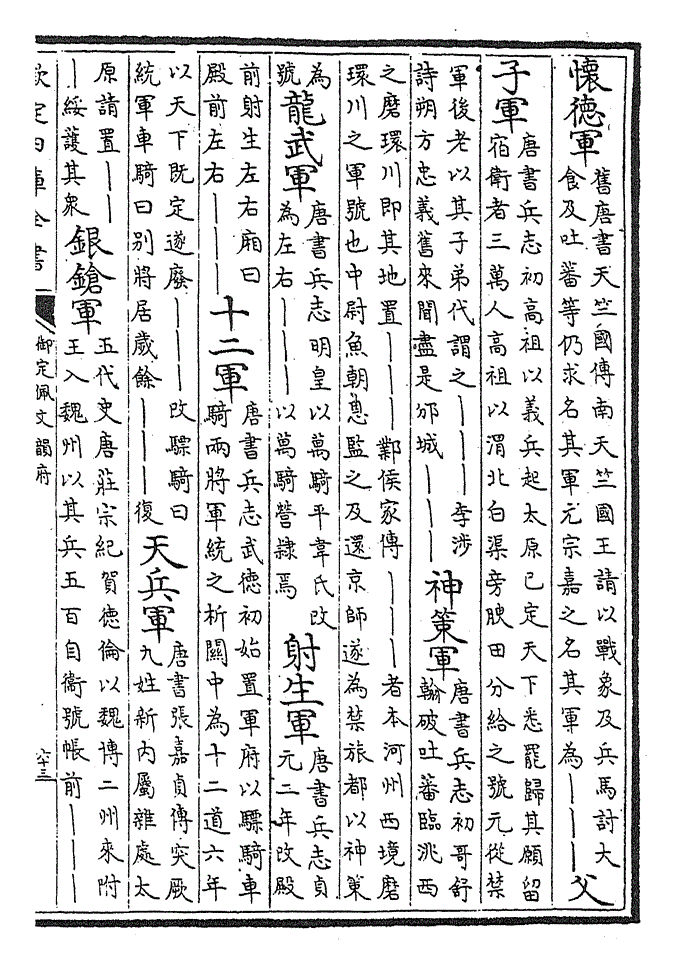 懷德軍舊唐書天竺國傳南天竺國王請以戰象及兵馬討大
食及吐蕃等仍求名其軍元宗嘉之名其軍為｜｜｜父
子軍唐書兵志初高祖以義兵起太原已定天下悉罷歸其願留
宿衛者三萬人高祖以渭北白渠旁腴田分給之號元從禁
軍後老以其子弟代謂之｜｜｜李涉
詩朔方忠義舊來聞盡是邠城｜｜｜神策軍唐書兵志初哥舒
翰破吐蕃臨洮西
之磨環川即其地置｜｜｜鄴侯家傳｜｜｜者本河州西境磨
環川之軍號也中尉魚朝恩監之及還京師遂為禁旅都以神策
為
號龍武軍唐書兵志明皇以萬騎平韋氏改
為左右｜｜｜以萬騎營隸焉射生軍唐書兵志貞
元二年改殿
前射生左右廂曰
殿前左右｜｜｜十二軍唐書兵志武德初始置軍府以驃騎車
騎兩將軍統之析關中為十二道六年
以天下既定遂廢｜｜｜改驃騎曰
統軍車騎曰別將居歲餘｜｜｜復天兵軍唐書張嘉貞傳突厥
九姓新內屬雜處太
原請置｜｜｜
｜綏護其衆銀鎗軍五代史唐莊宗紀賀德倫以魏博二州來附
王入魏州以其兵五百自衞號帳前｜｜｜
欽定四庫全書
御定佩文韻府
六十三